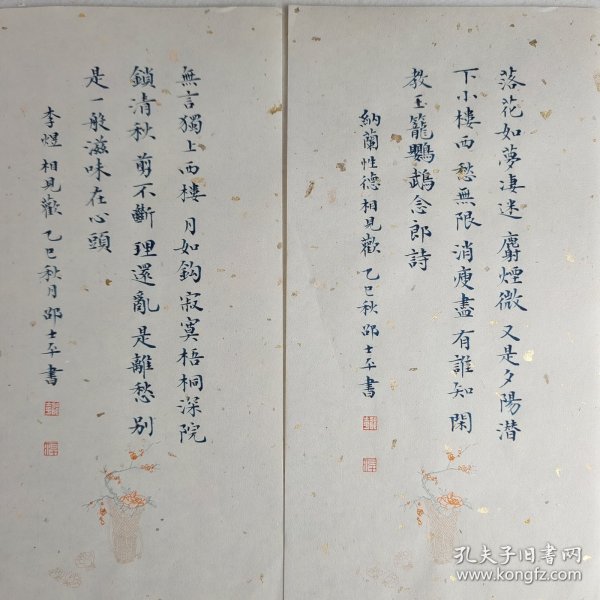 落花如夢凄迷 麝煙微 又是夕陽潛
下小樓西 愁無限 消瘦盡 有誰知 閑
教玉籠鸚鵡念郎詩
納蘭性德 相見歡 乙巳秋 邵士平書
無言獨上西樓 月如鈎 寂寞梧桐深院
鎖清秋 剪不斷 理還亂 是離愁 別
是一般滋味在心頭
李煜 相見歡 乙巳秋月 邵士平書
孔夫子旧书网
www.kongfz.com